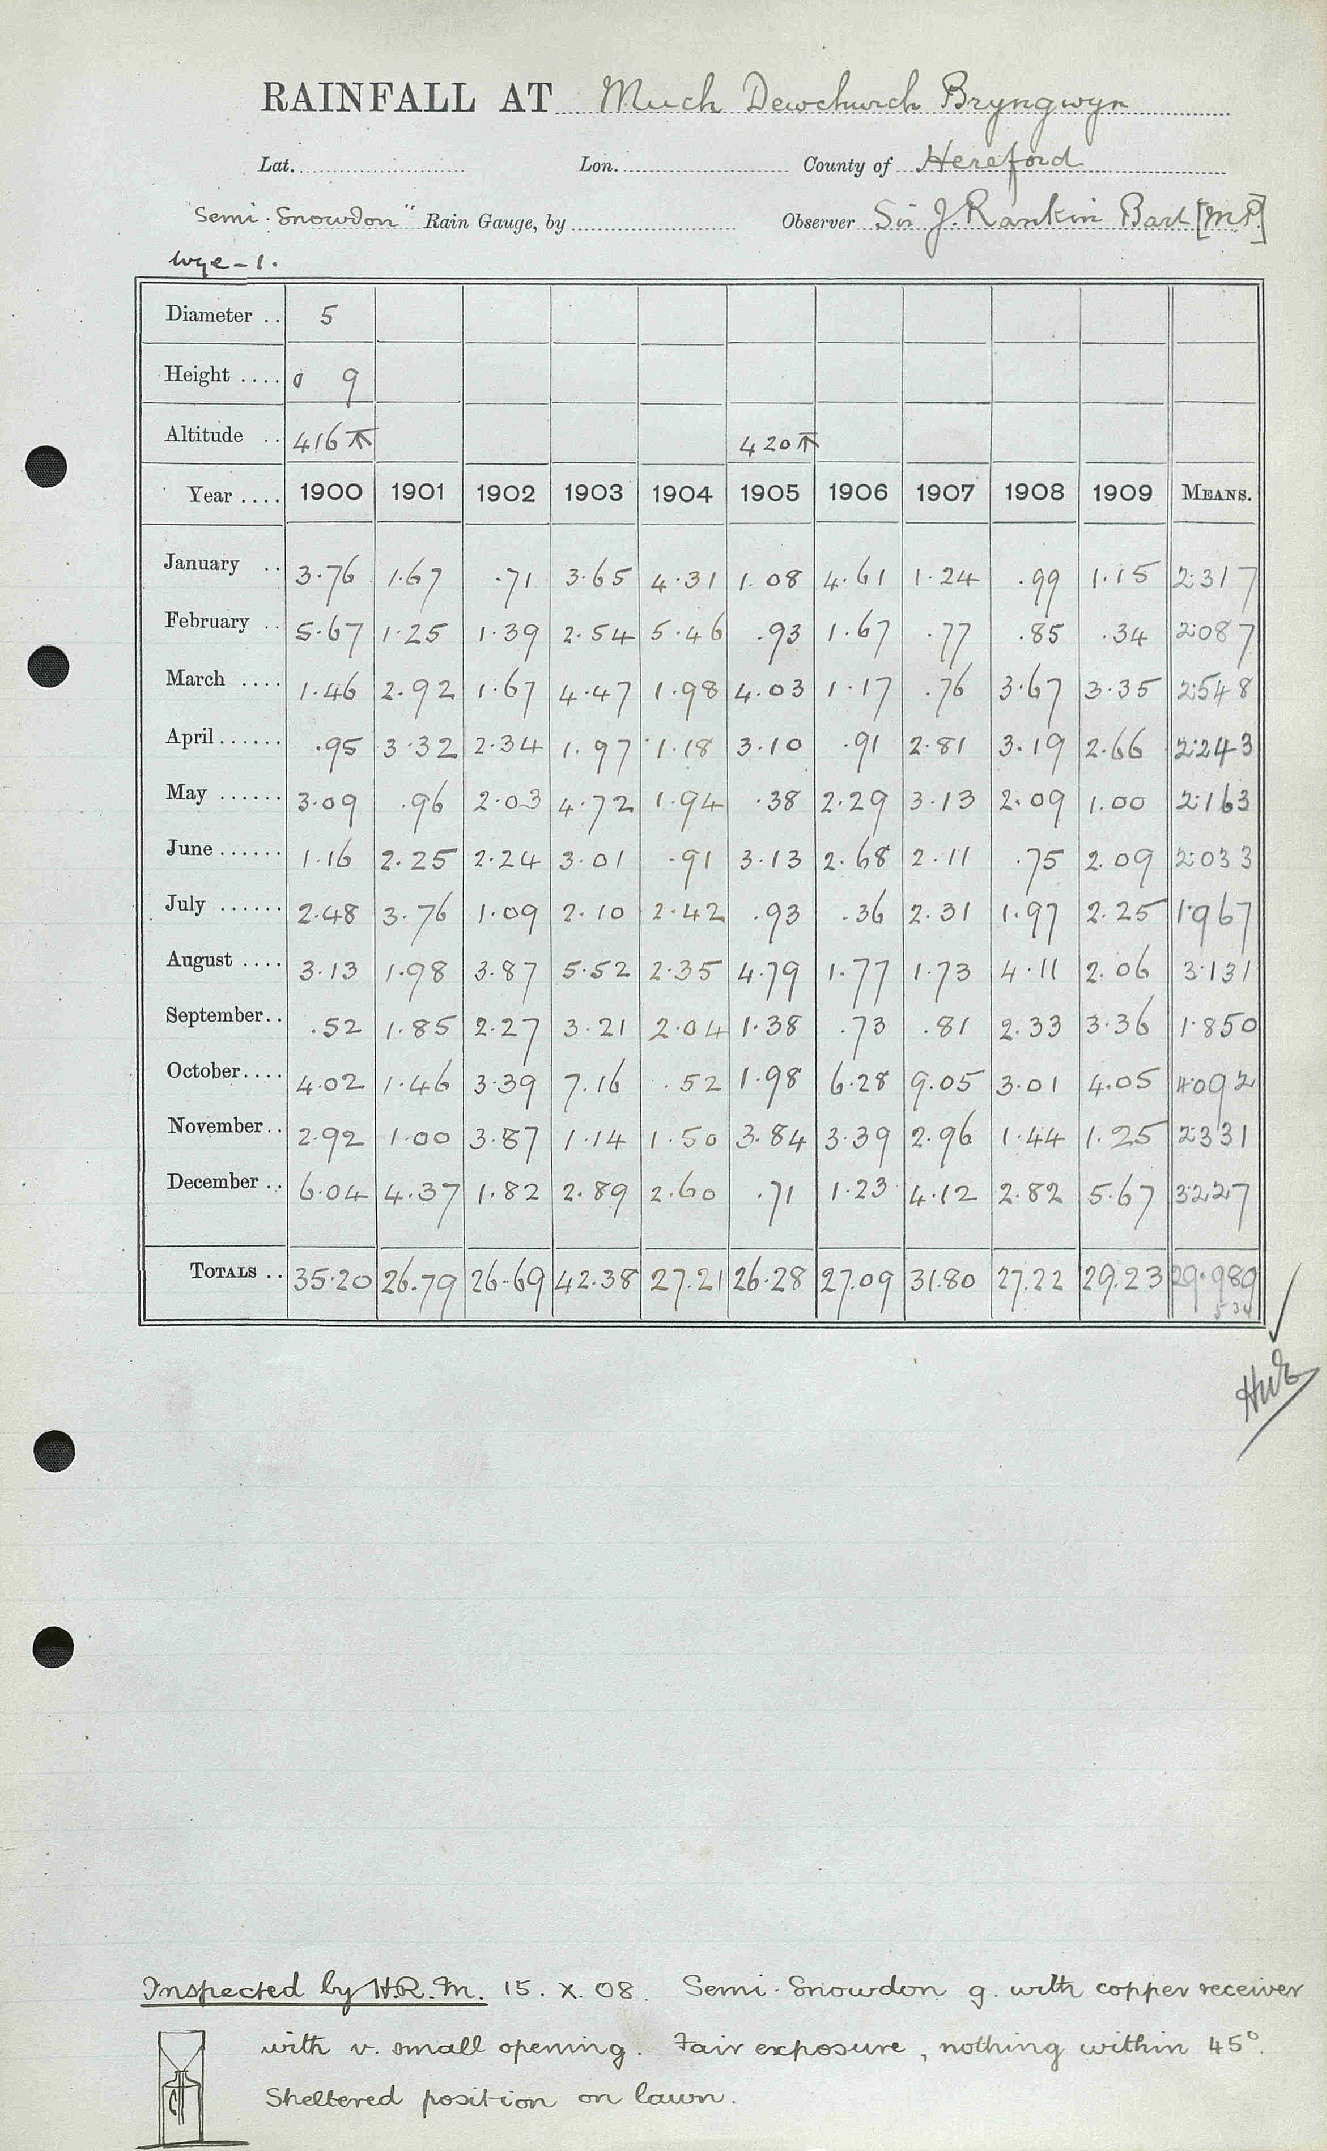 RAINFALL AT Much Dewchurch Bryngwyn
Lat. Lon. County of Hereford
"Semi-Snowdon" Rain Gauge, by Observer Sir J. Rankin Bart [M.P.]
Wye - 1.
Diameter .. 5
Height .... 0 9
Altitude .. 416 420
Year .... 1900 1901 1902 1903 1904 1905 1906 1907 1908 1909 MEANS.
January .. 3.76 1.67 .71 3.65 4.31 1.08 4.61 1.24 .99 1.15 2.317
February .. 5.67 1.25 1.39 2.54 5.46 .93 1.67 .77 .85 .34 2.087
March .... 1.46 2.92 1.67 4.47 1.98 4.03 1.17 .76 3.67 3.35 2.548
April...... .95 3.32 2.34 1.97 1.18 3.10 .91 2.81 3.19 2.66 2.243
May ...... 3.09 .96 2.03 4.72 1.94 .38 2.29 3.13 2.09 1.00 2.163
June...... 1.16 2.25 2.24 3.01 .91 3.13 2.68 2.11 .75 2.09 2.033
July ...... 2.48 3.76 1.09 2.10 2.42 .93 .36 2.31 1.97 2.25 1.967
August .... 3.13 1.98 3.87 5.52 2.35 4.79 1.77 1.73 4.11 2.06 3.131
September.. .52 1.85 2.27 3.21 2.04 1.38 .73 .81 2.33 3.36 1.850
October.... 4.02 1.46 3.39 7.16 .52 1.98 6.28 9.05 3.01 4.05 4.092
November.. 2.92 1.00 3.87 1.14 1.50 3.84 3.39 2.96 1.44 1.25 2.331
December .. 6.04 4.37 1.82 2.89 2.60 .71 1.23 4.12 2.82 5.67 3.227
TOTALS .. 35.20 26.79 26.69 42.38 27.21 26.28 27.09 31.80 27.22 29.23 29.989
Inspected by H.R.M. 15. X. 08. Semi-Snowdon g. with copper receiver
with v. small opening. Fair exposure, nothing within 45°.
Sheltered position on lawn.